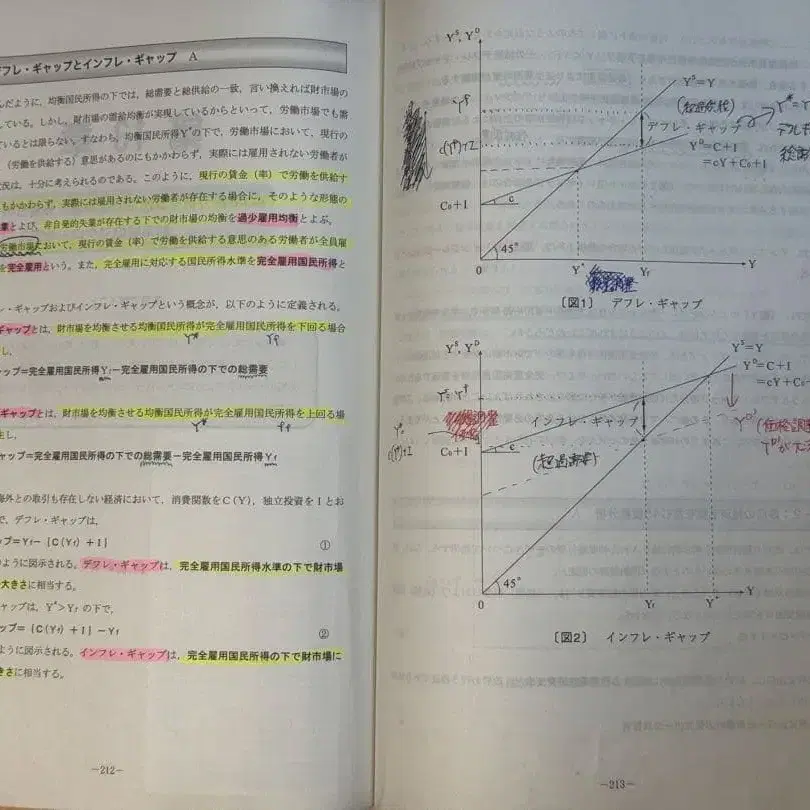 フレ・ギャップとインフレ・ギャップ A
んだように，均衡国民所得の下では，総需要と総供給の一致，言い換えれば財市場の
している。しかし，財市場の需給均衡が実現しているからといって，労働市場でも需
ているとは限らない。すなわち，均衡国民所得Y*の下で，労働市場において，現行の
（労働を供給する）意思があるのにもかかわらず，実際には雇用されない労働者が
況は，十分に考えられるのである。このように，現行の賃金（率）で労働を供給す
もかかわらず，実際には雇用されない労働者が存在する場合に，そのような形態の
業とよび，非自発的失業が存在する下での財市場の均衡を過少雇用均衡とよぶ。
労働市場において，現行の賃金（率）で労働を供給する意思のある労働者が全員雇
を完全雇用という。また，完全雇用に対応する国民所得水準を完全雇用国民所得と
レ・ギャップおよびインフレ・ギャップという概念が，以下のように定義される。
ギャップとは，財市場を均衡させる均衡国民所得が完全雇用国民所得を下回る場合
Y* Yf
し，
ップ＝完全雇用国民所得Yf－完全雇用国民所得の下での総需要
ギャップとは，財市場を均衡させる均衡国民所得が完全雇用国民所得を上回る場
Y* Yf
生し，
ャップ＝完全雇用国民所得の下での総需要－完全雇用国民所得Yf
海外との取引も存在しない経済において，消費関数をC(Y)，独立投資をIとお
で，デフレ・ギャップは，
ップ＝Yf－{C(Yf)+I} ①
のように図示される。デフレ・ギャップは，完全雇用国民所得水準の下で財市場
大きさに相当する。
ャップは，Y*>Yfの下で，
ップ＝{C(Yf)+I}－Yf ②
ように図示される。インフレ・ギャップは，完全雇用国民所得の下で財市場に
きさに相当する。
－212－
Yˢ, Yᴰ
Yˢ=Y
(超過供給)
Y*=
デフレ・ギャップ
デフレギ
C(Yf)+I
Yᴰ=C+I
=cY+C₀+I
総需
C₀+I
c
45°
0
Y*
Yf
Y
〔図1〕 デフレ・ギャップ
Yˢ, Yᴰ
Yˢ=Y
Yᴰ=C+I
=cY+C₀
インフレ・ギャップ
C(Yf)+I
C₀+I
c
(超過需要)
Yᴰ'
(価格調
45°
0
Yf
Y*
Y
〔図2〕 インフレ・ギャップ
－213－